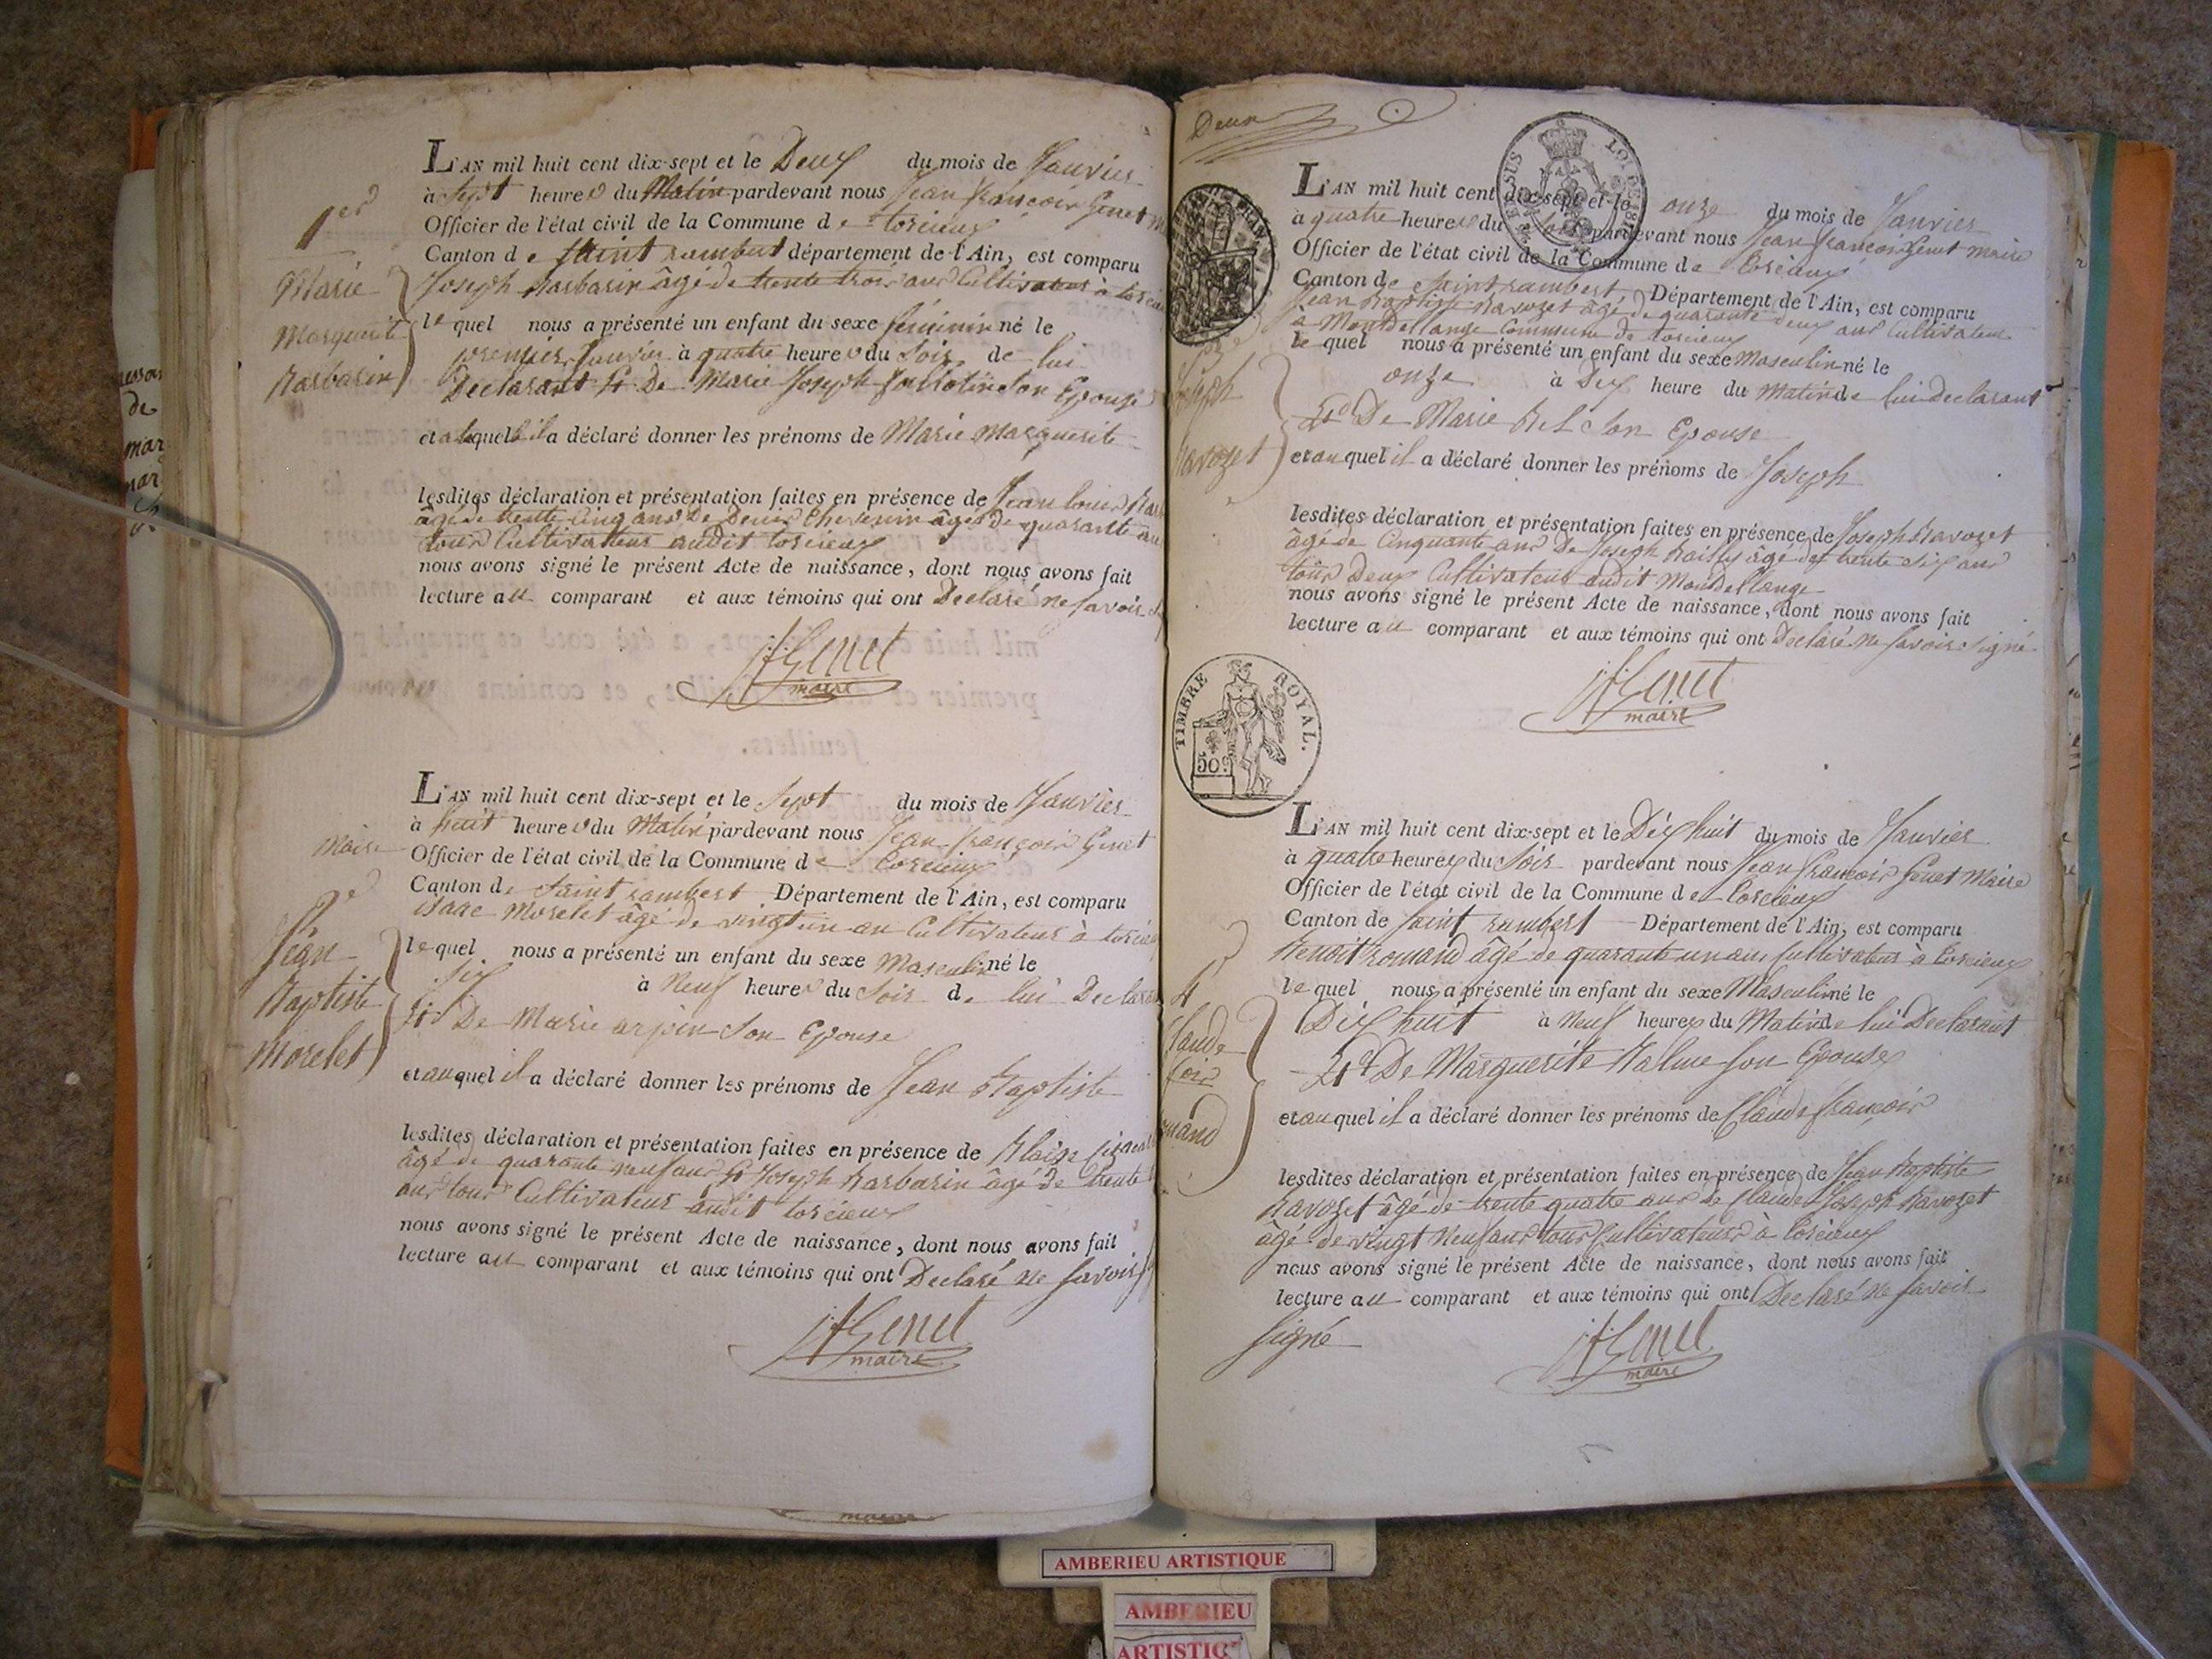 1er
Marie
Marguerite
Barbarin
L'AN mil huit cent dix-sept et le Deux du mois de Janvier
à Sept heures du Matin pardevant nous Jean françois Genet
Officier de l'état civil de la Commune de torcieux
Canton de Saint rambert département de l'Ain, est comparu
Joseph Barbarin âgé de trente trois ans Cultivateur à
lequel nous a présenté un enfant du sexe féminin né le
premier Janvier à quatre heures du Soir de lui
Declarant Et De Marie Joseph son Epouse
et auquel il a déclaré donner les prénoms de Marie Marguerite
lesdites déclaration et présentation faites en présence de Jean louis
âgé de trente Cinq ans De Denis âgé de quarante
tous Cultivateurs audit torcieux
nous avons signé le présent Acte de naissance, dont nous avons fait
lecture au comparant et aux témoins qui ont Declaré ne savoir
Jf Genet
maire
maire
2e
Jean
Baptiste
Morelet
L'AN mil huit cent dix-sept et le Sept du mois de Janvier
à huit heures du Matin pardevant nous Jean françois Genet
Officier de l'état civil de la Commune de torcieux
Canton de Saint rambert Département de l'Ain, est comparu
isaac Morelet âgé de vingt un an Cultivateur à
lequel nous a présenté un enfant du sexe Masculin né le
Six à Neuf heures du Soir de lui
Et De Marie arpin Son Epouse
et auquel il a déclaré donner les prénoms de Jean Baptiste
lesdites déclaration et présentation faites en présence de Blaise
âgé de quarante neuf ans Et Joseph Barbarin âgé de trente
ans tous Cultivateurs audit torcieux
nous avons signé le présent Acte de naissance, dont nous avons fait
lecture au comparant et aux témoins qui ont Declaré ne savoir
Jf Genet
maire
maire
Deux
LOI DE 1816
TIMBRE ROYAL.
50c
Joseph
Ravozet
L'AN mil huit cent dix-sept et le onze du mois de Janvier
à quatre heures du Soir pardevant nous Jean françois Genet maire
Officier de l'état civil de la Commune de torcieux
Canton de Saint rambert Département de l'Ain, est comparu
Jean Baptiste Ravozet âgé de quarante deux ans Cultivateur
à Montdellange Commune de torcieux
lequel nous a présenté un enfant du sexe Masculin né le
onze à Dix heure du Matin de lui declarant
Et De Marie Bel Son Epouse
et auquel il a déclaré donner les prénoms de Joseph
lesdites déclaration et présentation faites en présence de Joseph Ravozet
âgé de Cinquante ans De Joseph âgé de trente Six ans
tous Deux Cultivateurs audit Montdellange
nous avons signé le présent Acte de naissance, dont nous avons fait
lecture au comparant et aux témoins qui ont Declaré Ne savoir Signé
Jf Genet
maire
4
L'AN mil huit cent dix-sept et le Dix huit du mois de Janvier
à quatre heures du Soir pardevant nous Jean françois Genet Maire
Officier de l'état civil de la Commune de torcieux
Canton de Saint rambert Département de l'Ain, est comparu
Benoit romand âgé de quarante un ans Cultivateur à torcieux
lequel nous a présenté un enfant du sexe Masculin né le
Dix huit à Neuf heures du Matin de lui Declarant
Et De Marguerite Balme son Epouse
et auquel il a déclaré donner les prénoms de Claude françois
lesdites déclaration et présentation faites en présence de Jean Baptiste
Ravozet âgé de trente quatre ans De Claude Joseph Ravozet
âgé de vingt Neuf ans tous Cultivateurs à torcieux
nous avons signé le présent Acte de naissance, dont nous avons fait
lecture au comparant et aux témoins qui ont Declaré Ne savoir
Signé
Jf Genet
maire
AMBERIEU ARTISTIQUE
AMBERIEU